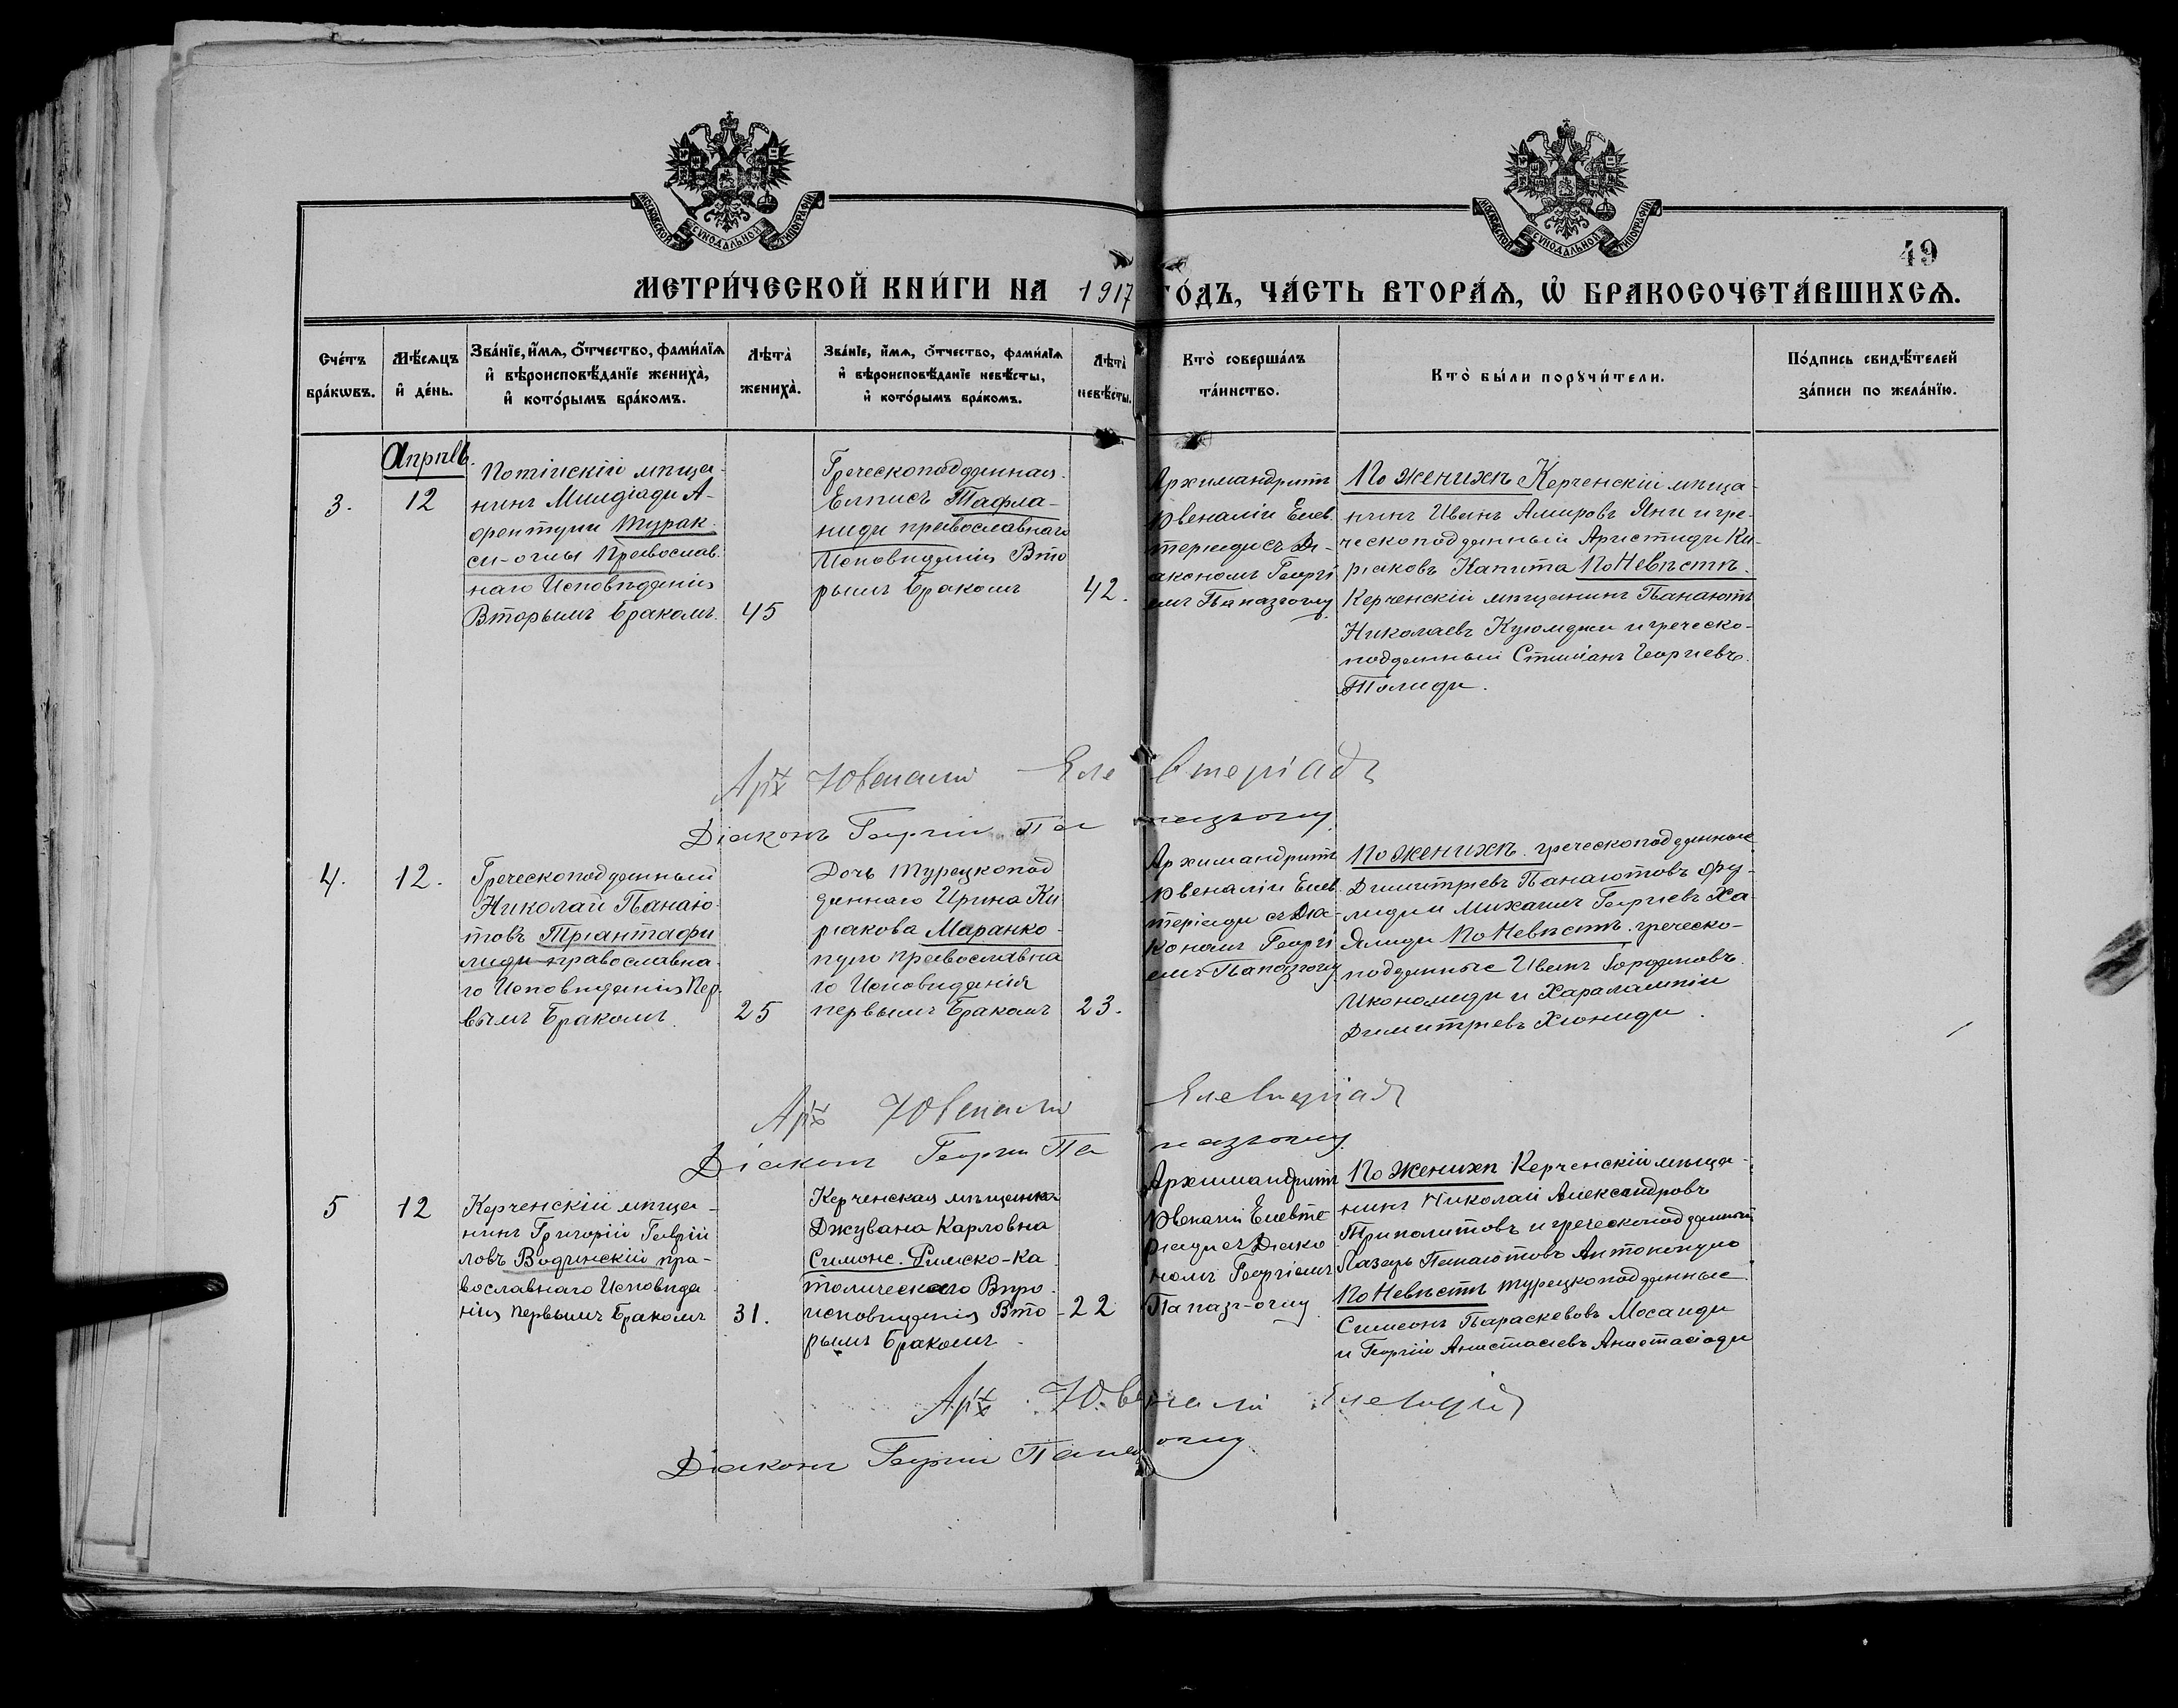 МОСКОВСКОЙ СѴНОДАЛЬНОЙ ТИПОГРАФІИ
МОСКОВСКОЙ СѴНОДАЛЬНОЙ ТИПОГРАФІИ
49
МЕТРИ́ЧЕСКОЙ КНИ́ГИ НА 1917 ГО́ДЪ, ЧА́СТЬ ВТОРА́Ѧ, Ѡ҆ БРАКОСОЧЕТА́ВШИХСѦ.
Сче́тъ
бра́кѡвъ.
Мѣ́сѧцъ
и҆ де́нь.
Зва́нїе, и҆́мѧ, ѻ҆́тчество, фами́лїѧ
и҆ вѣроисповѣ́данїе жениха̀,
и҆ кото́рымъ бра́комъ.
Лѣта̀
жениха̀.
Зва́нїе, и҆́мѧ, ѻ҆́тчество, фами́лїѧ
и҆ вѣроисповѣ́данїе невѣ́сты,
и҆ кото́рымъ бра́комъ.
Лѣта̀
невѣ́сты.
Кто̀ соверша́лъ
та́инство.
Кто̀ бы́ли порꙋчи́тели.
По́дпись свидѣ́телей
за́писи по жела́нїю.
Апрпль.
3.
12
Потійскій мѣща-
нинъ Милдіади А-
фентули Турак
си-оглы Православ-
наго Исповѣданія
Вторымъ бракомъ.
45
Греческоподданная
Елписъ Тафла-
ниди православнаго
Исповѣданія Вто
рымъ бракомъ
42.
Архимандритъ
Ювеналій Елев.
теріади съ Ді-
акономъ Георгі
емъ Папазъоглу.
По женихѣ Керченскій мѣща-
нинъ Иванъ Амировъ Яни и гре-
ческоподданный Аристиди Ки-
ріаковъ Капита По Невѣстѣ.
Керченскій мѣщанинъ Панаютъ
Николаевъ Куюмджи и греческо-
подданный Стиліанъ Георгіевъ
Толиди.
Арх Ювеналій Елевтеріадъ
Діаконъ Георгій Папазъоглу
4.
12.
Греческоподданный
Николай Панаю-
товъ Тріантафи
лиди православна-
го Исповѣданія Пер-
вымъ Бракомъ
25
Дочь Турецкопод
даннаго Ирина Ки
ріакова Маранко-
пуло Православна
го Исповѣданія
первымъ Бракомъ
23.
Архимандритъ
Ювеналій Елев
теріади съ Діа-
кономъ Георгі
емъ Папазъоглу
По женихѣ. греческоподданные
Димитріевъ Панаютовъ Фу-
лиди и Михаилъ Георгіевъ Ха-
лиди По Невѣстѣ. греческо-
подданные Иванъ Іордановъ
Икономиди и Харалампій
Димитріевъ Хіониди.
Арх Ювеналій Елевтеріадъ
Діаконъ Георгій Папазъоглу.
5
12
Керченскій мѣща-
нинъ Григорій Гаврій
ловъ Водинскій пра-
вославнаго Исповѣда
нія первымъ Бракомъ
31.
Керченская мѣщанка
Джувана Карловна
Симонс. Римско-ка
толическаго Вѣро-
исповѣданія Вто-
рымъ Бракомъ
22
Архимандритъ
Ювеналій Елевте
ріади съ Діако
номъ Георгіемъ
Папазъ-оглу
По женихѣ Керченскій мѣща-
нинъ Николай Александровъ
Триполитовъ и греческоподданный
Лазарь Панаютовъ Антонопуло
По Невѣстѣ турецкоподданные
Симеонъ Параскевовъ Мосаиди
и Георгій Анастасіевъ Анастасіади
Арх Ювеналій Елевтеріадъ
Діаконъ Георгій Папазъоглу